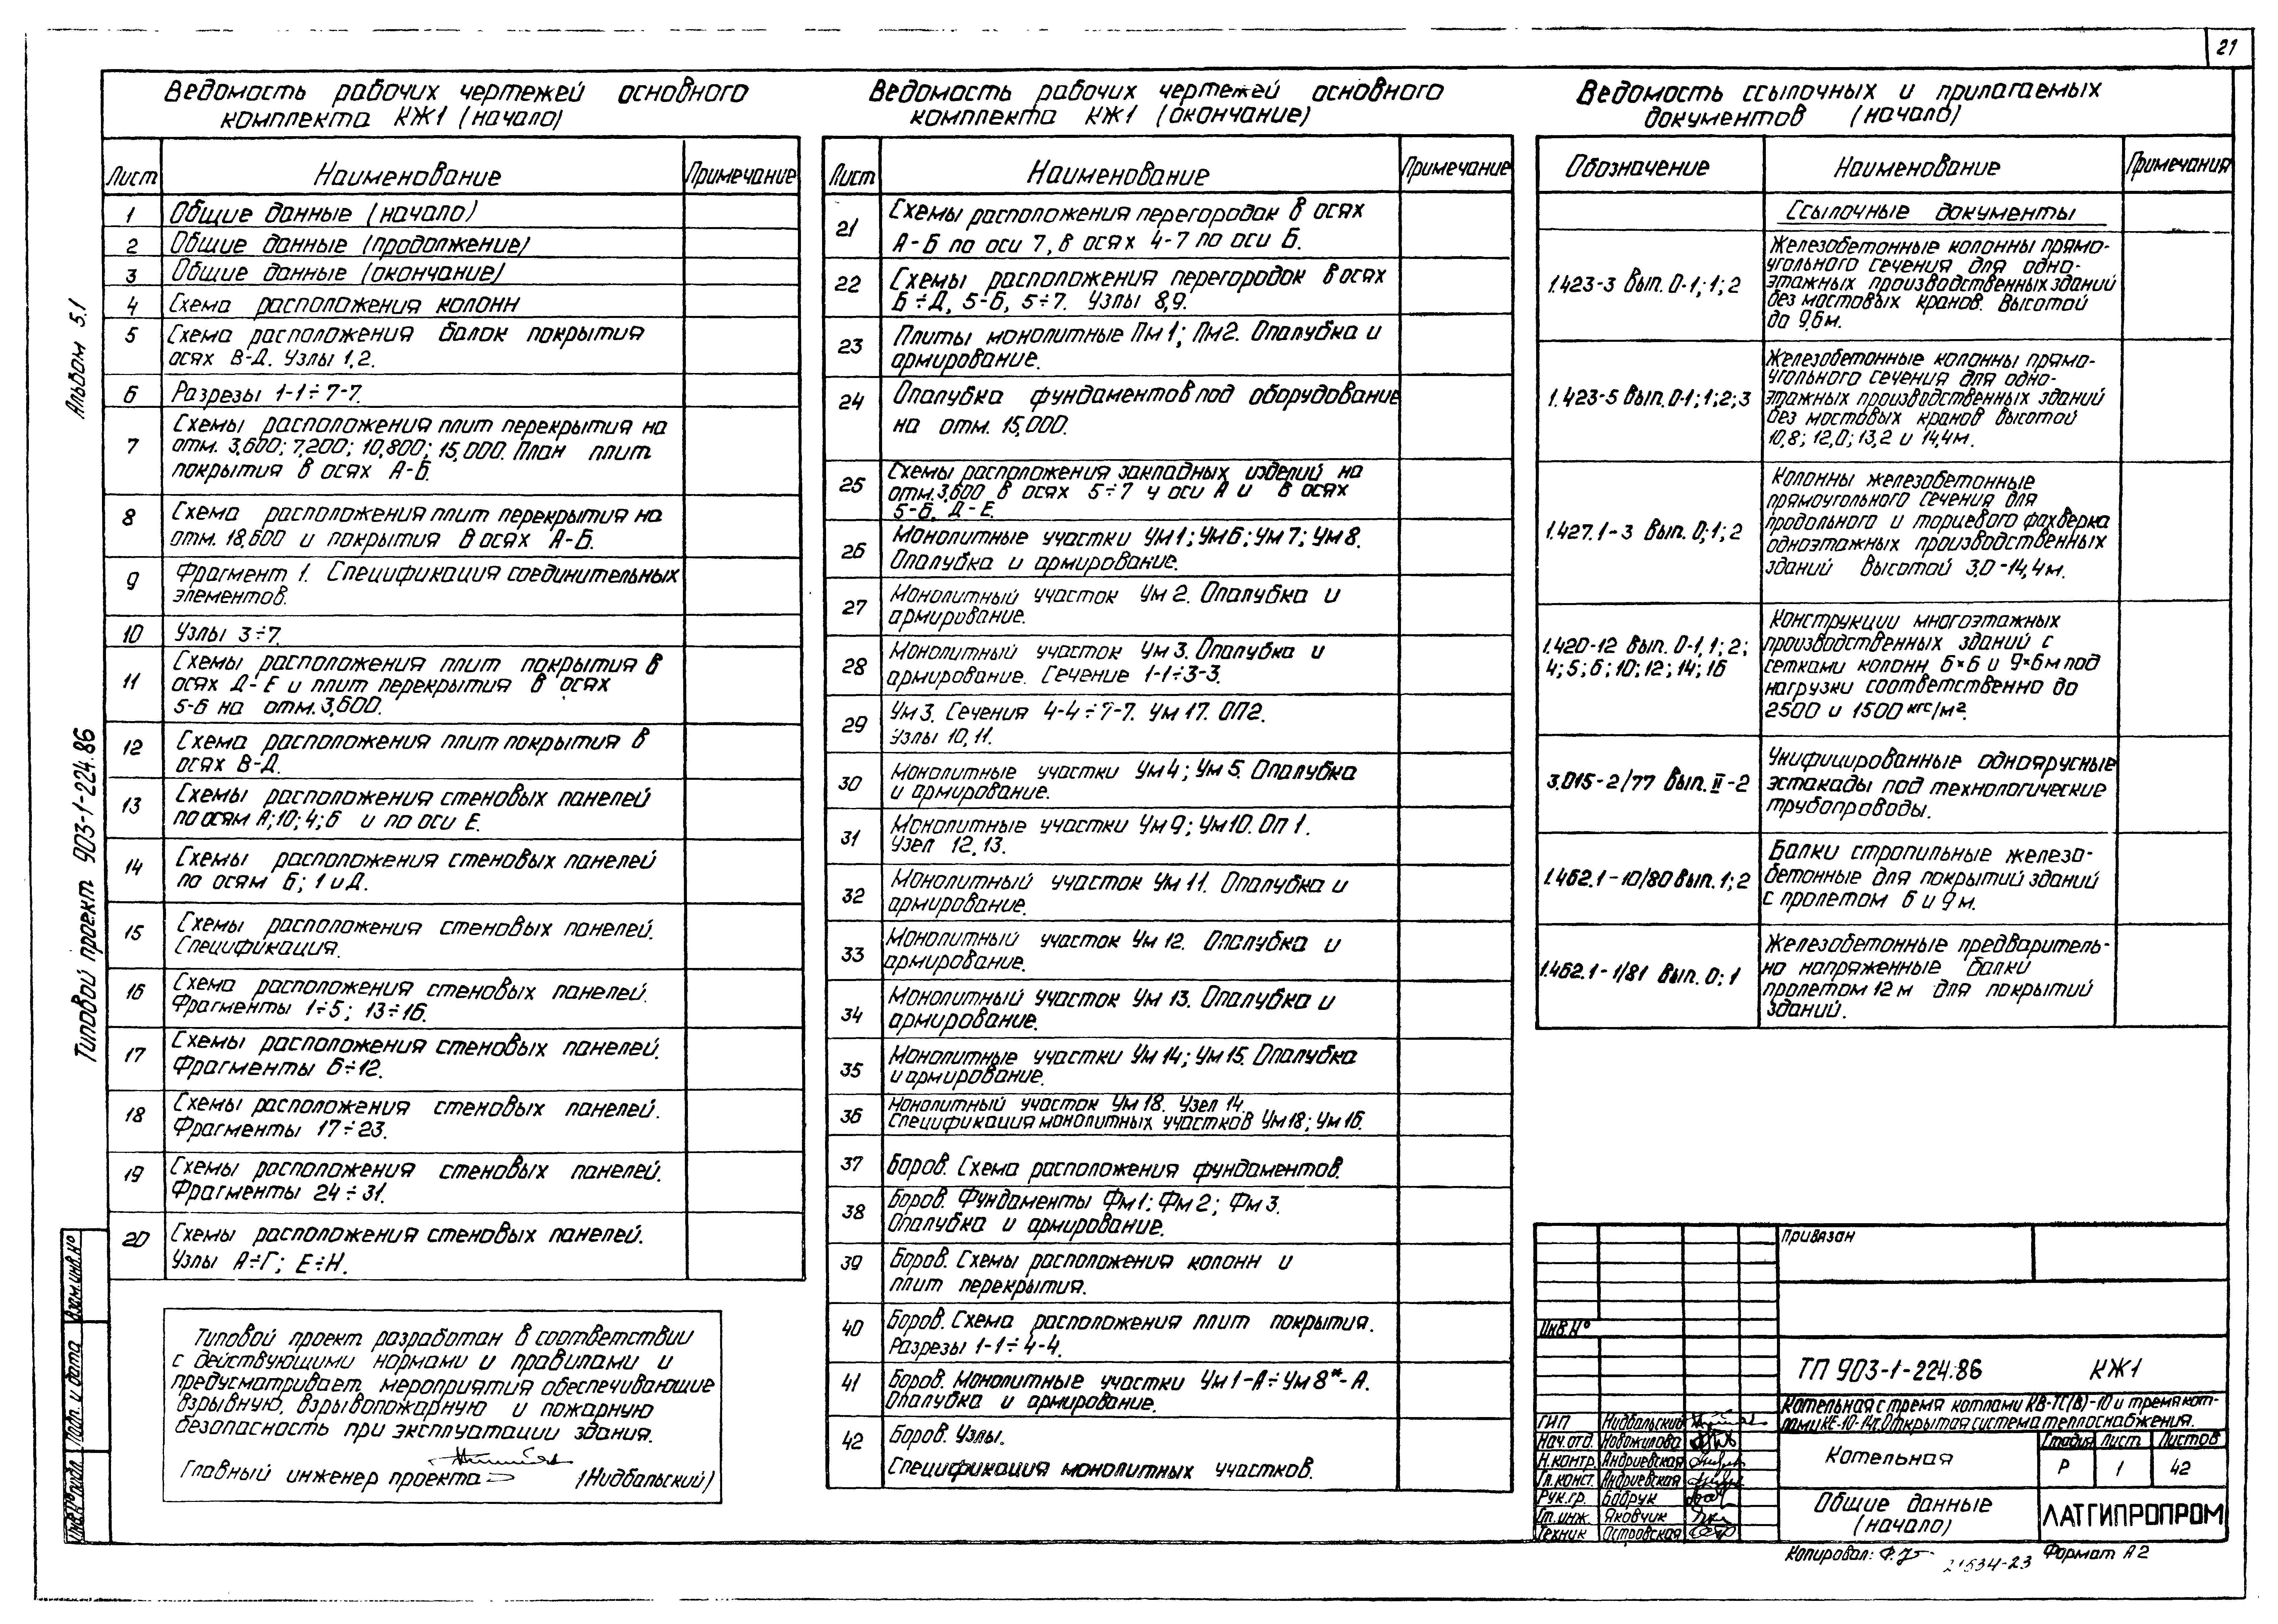 21
Ведомость рабочих чертежей основного
комплекта КЖ1 (начало)
Лист Наименование Примечание
1 Общие данные (начало)
2 Общие данные (продолжение)
3 Общие данные (окончание)
4 Схема расположения колонн
5 Схема расположения балок покрытия
осях В-Д. Узлы 1,2.
6 Разрезы 1-1÷7-7.
7 Схемы расположения плит перекрытия на
отм. 3,600; 7,200; 10,800; 15,000. План плит
покрытия в осях А-Б.
8 Схема расположения плит перекрытия на
отм. 18,600 и покрытия в осях А-Б.
9 Фрагмент 1. Спецификация соединительных
элементов.
10 Узлы 3÷7.
11 Схемы расположения плит покрытия в
осях Д-Е и плит перекрытия в осях
5-6 на отм. 3,600.
12 Схема расположения плит покрытия в
осях В-Д.
13 Схемы расположения стеновых панелей
по осям А; 10; 4; 6 и по оси Е.
14 Схемы расположения стеновых панелей
по осям Б; 1 и Д.
15 Схемы расположения стеновых панелей.
Спецификация.
16 Схема расположения стеновых панелей.
Фрагменты 1÷5; 13÷16.
17 Схемы расположения стеновых панелей.
Фрагменты 6÷12.
18 Схемы расположения стеновых панелей.
Фрагменты 17÷23.
19 Схемы расположения стеновых панелей.
Фрагменты 24÷31.
20 Схемы расположения стеновых панелей.
Узлы А÷Г; Е÷Н.
Типовой проект разработан в соответствии
с действующими нормами и правилами и
предусматривает мероприятия обеспечивающие
взрывную, взрывопожарную и пожарную
безопасность при эксплуатации здания.
Главный инженер проекта (Нидбальский)
Ведомость рабочих чертежей основного
комплекта КЖ1 (окончание)
Лист Наименование Примечание
21 Схемы расположения перегородок в осях
А-Б по оси 7, в осях 4-7 по оси Б.
22 Схемы расположения перегородок в осях
Б÷Д, 5-6, 5÷7. Узлы 8,9.
23 Плиты монолитные Пм1; Пм2. Опалубка и
армирование.
24 Опалубка фундаментов под оборудование
на отм. 15,000.
25 Схемы расположения закладных изделий на
отм. 3,600 в осях 5÷7 у оси А и в осях
5-6, Д-Е.
26 Монолитные участки Ум1; Ум6; Ум7; Ум8.
Опалубка и армирование.
27 Монолитный участок Ум2. Опалубка и
армирование.
28 Монолитный участок Ум3. Опалубка и
армирование. Сечение 1-1÷3-3.
29 Ум3. Сечения 4-4÷7-7. Ум17. ОП2.
Узлы 10, 11.
30 Монолитные участки Ум4; Ум5. Опалубка
и армирование.
31 Монолитные участки Ум9; Ум10. Оп1.
Узел 12, 13.
32 Монолитный участок Ум11. Опалубка и
армирование.
33 Монолитный участок Ум12. Опалубка и
армирование.
34 Монолитный участок Ум13. Опалубка и
армирование.
35 Монолитные участки Ум14; Ум15. Опалубка
и армирование.
36 Монолитный участок Ум18. Узел 14.
Спецификация монолитных участков Ум18; Ум16.
37 Боров. Схема расположения фундаментов.
38 Боров. Фундаменты Фм1; Фм2; Фм3.
Опалубка и армирование.
39 Боров. Схемы расположения колонн и
плит перекрытия.
40 Боров. Схема расположения плит покрытия.
Разрезы 1-1÷4-4.
41 Боров. Монолитные участки Ум1-А÷Ум8*-А.
Опалубка и армирование.
42 Боров. Узлы.
Спецификация монолитных участков.
Ведомость ссылочных и прилагаемых
документов (начало)
Обозначение Наименование Примечания
Ссылочные документы
1.423-3 Вып. 0-1; 1; 2 Железобетонные колонны прямо-
угольного сечения для одно-
этажных производственных зданий
без мостовых кранов. Высотой
до 9,6м.
1.423-5 Вып. 0-1; 1; 2; 3 Железобетонные колонны прямо-
угольного сечения для одно-
этажных производственных зданий
без мостовых кранов высотой
10,8; 12,0; 13,2 и 14,4м.
1.427.1-3 Вып. 0; 1; 2 Колонны железобетонные
прямоугольного сечения для
продольного и торцевого фахверка
одноэтажных производственных
зданий высотой 3,0-14,4м.
1.420-12 Вып. 0-1, 1; 2;
4; 5; 6; 10; 12; 14; 16
Конструкции многоэтажных
производственных зданий с
сетками колонн 6×6 и 9×6м под
нагрузки соответственно до
2500 и 1500 кгс/м².
3.015-2/77 Вып. II-2 Унифицированные одноярусные
эстакады под технологические
трубопроводы.
1.462.1-10/80 Вып. 1; 2 Балки стропильные железо-
бетонные для покрытий зданий
с пролетом 6 и 9м.
1.462.1-1/81 Вып. 0; 1 Железобетонные предваритель-
но напряженные балки
пролетом 12м для покрытий
зданий.
Привязан
Инв.№
ТП 903-1-224.86 КЖ1
Котельная с тремя котлами КВ-ТС(В)-10 и тремя кот-
лами КЕ-10-14г. Открытая система теплоснабжения.
ГИП Нидбальский
Нач.отд. Новожилова
Н.контр. Андриевская
Гл.конст. Андриевская
Рук.гр. Бабрук
Ст.инж. Яковчик
Техник Островская
Котельная
Стадия Лист Листов
Р 1 42
Общие данные
(начало)
ЛАТГИПРОПРОМ
Копировал:
21534-23
Формат А2
Альбом 5.1
Типовой проект 903-1-224.86
Взам.инв.№
Подп. и дата
Инв.№ подл.